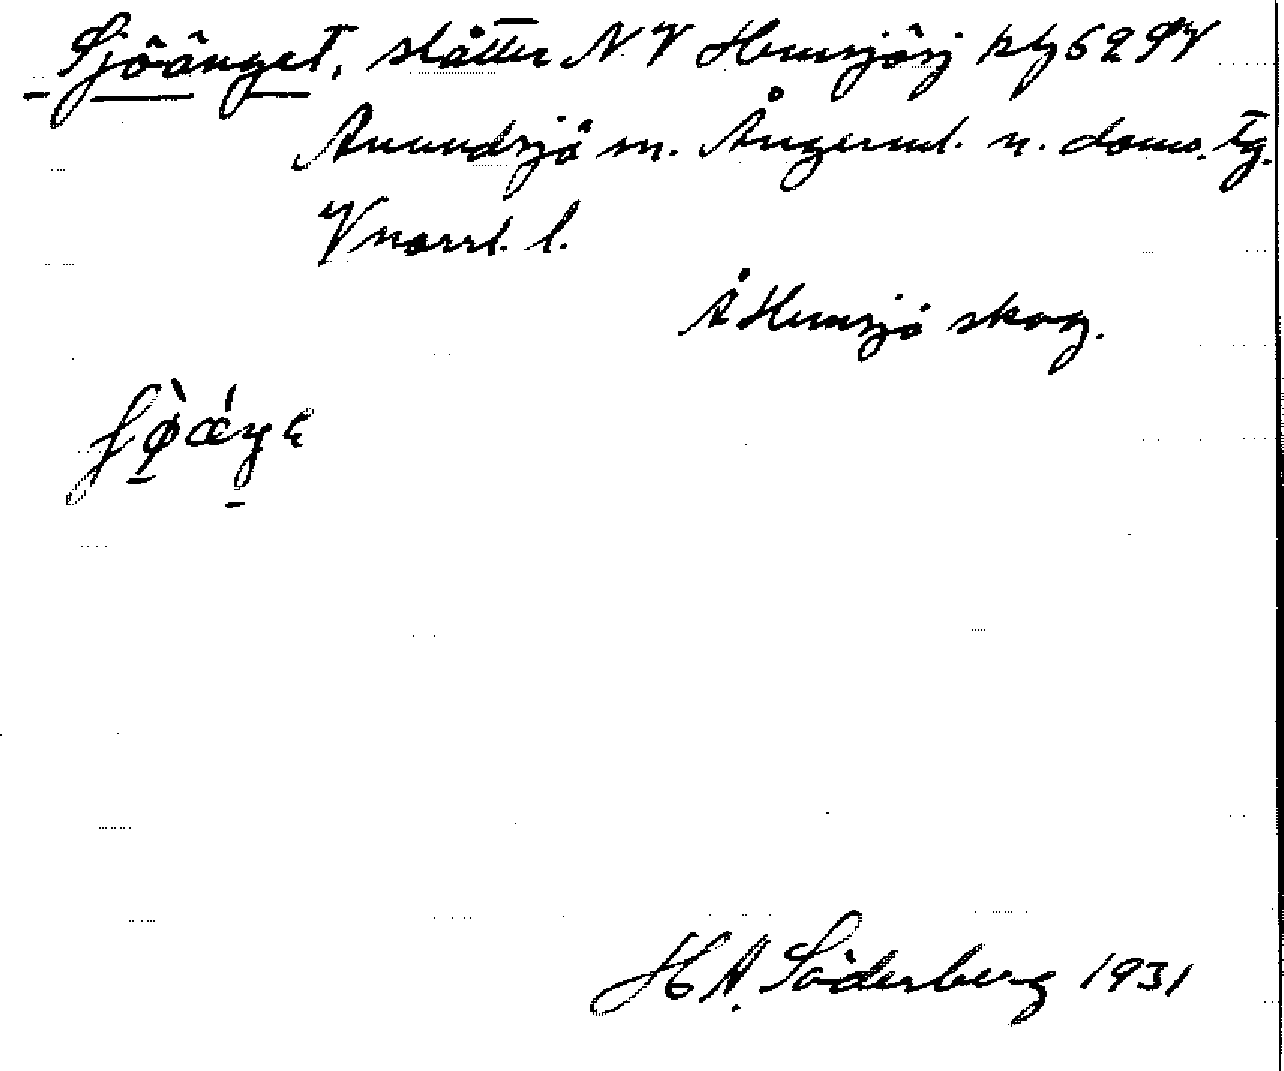 Sjöänget, slåtter NV Hemsjösj kbl 62 SV
Anundsjö sn. Ångerml. n. doms. tg.
Vnorrl. l.
Å Hemsjö skog.
H A. Söderberg 1931